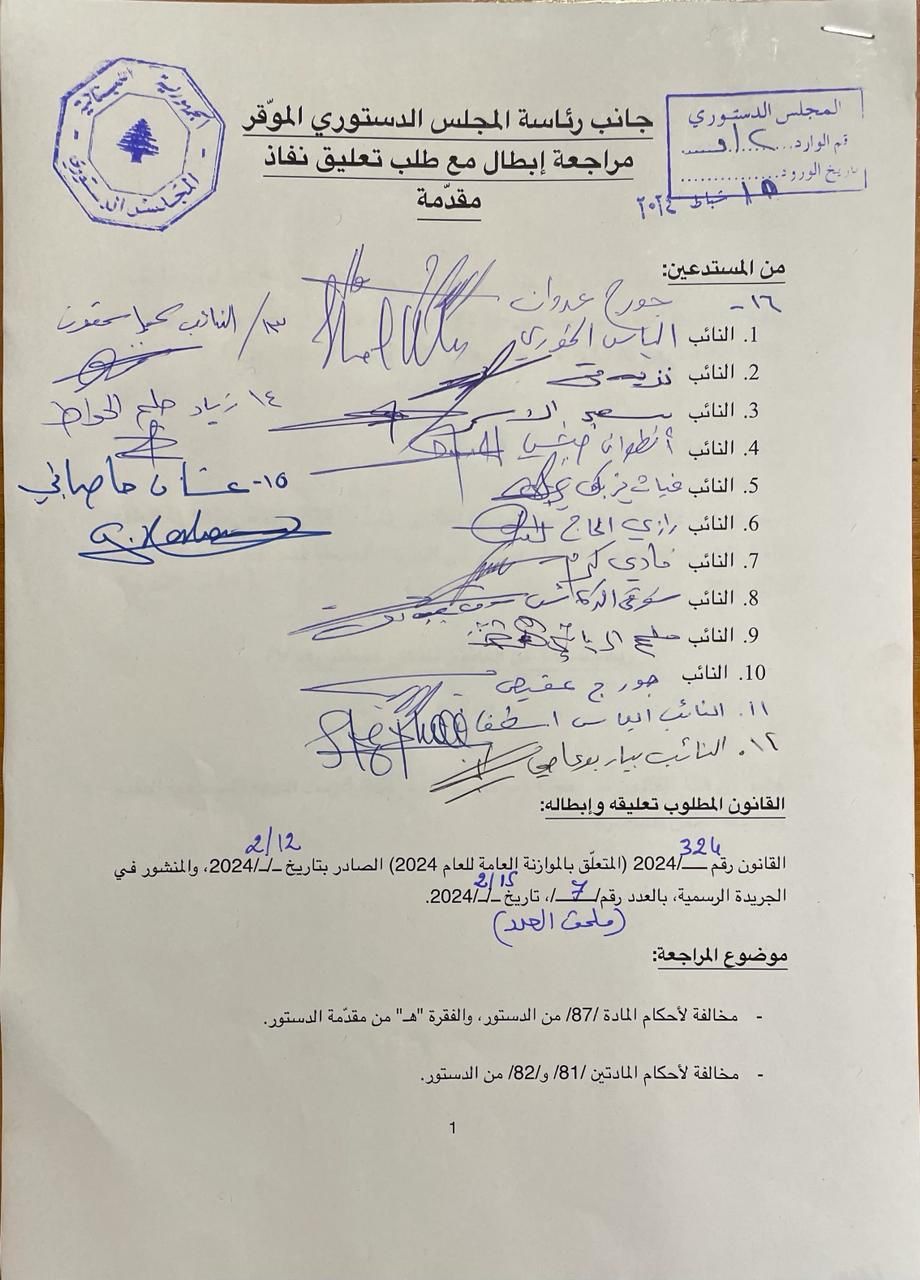 الجمهورية اللبنانية
المجلس الدستوري
المجلس الدستوري
رقم الوارد
تاريخ الورود
شباط ٢٠٢٤
جانب رئاسة المجلس الدستوري الموّقر
مراجعة إبطال مع طلب تعليق نفاذ
مقدّمة
من المستدعين:
١٦- جورج عدوان
1. النائب الياس الخوري
2. النائب نزيه متى
3. النائب سعيد الاسمر
4. النائب أنطوان حبشي
5. النائب غياث يزبك
6. النائب رازي الحاج
7. النائب فادي كرم
8. النائب شوقي الدكاش
9. النائب ملحم الرياشي
10. النائب جورج عقيص
١١. النائب الياس اسطفان
١٢. النائب بيار بوعاصي
١٣/ النائب
١٤ زياد الحواط
١٥- غسان حاصباني
القانون المطلوب تعليقه وإبطاله:
القانون رقم 324/2024 (المتعلّق بالموازنة العامة للعام 2024) الصادر بتاريخ 2/12/2024، والمنشور في
الجريدة الرسمية، بالعدد رقم/7/، تاريخ 2/15/2024.
(ملحق العدد)
موضوع المراجعة:
- مخالفة لأحكام المادة /87/ من الدستور، والفقرة "هـ" من مقدّمة الدستور.
- مخالفة لأحكام المادتين /81/ و/82/ من الدستور.
1